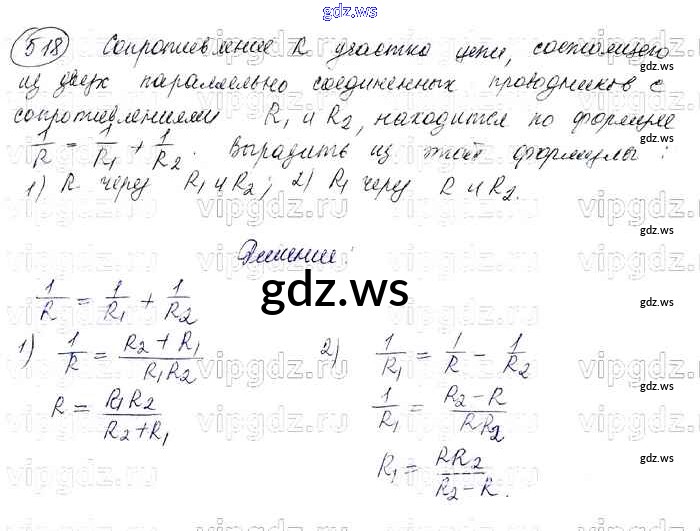 gdz.ws
518 Сопротивление R участка цепи, состоящего
из двух параллельно соединенных проводников с
сопротивлениями R₁ и R₂, находится по формуле
1/R = 1/R₁ + 1/R₂. Выразить из этой формулы:
1) R через R₁ и R₂; 2) R₁ через R и R₂.
Решение:
1/R = 1/R₁ + 1/R₂
1) 1/R = (R₂ + R₁)/(R₁R₂)
R = (R₁R₂)/(R₂+R₁)
2) 1/R₁ = 1/R − 1/R₂
1/R₁ = (R₂−R)/(RR₂)
R₁ = (RR₂)/(R₂−R).
gdz.ws
gdz.ws
gdz.ws
gdz.ws
gdz.ws
gdz.ws
gdz.ws
gdz.ws
vipgdz.ru